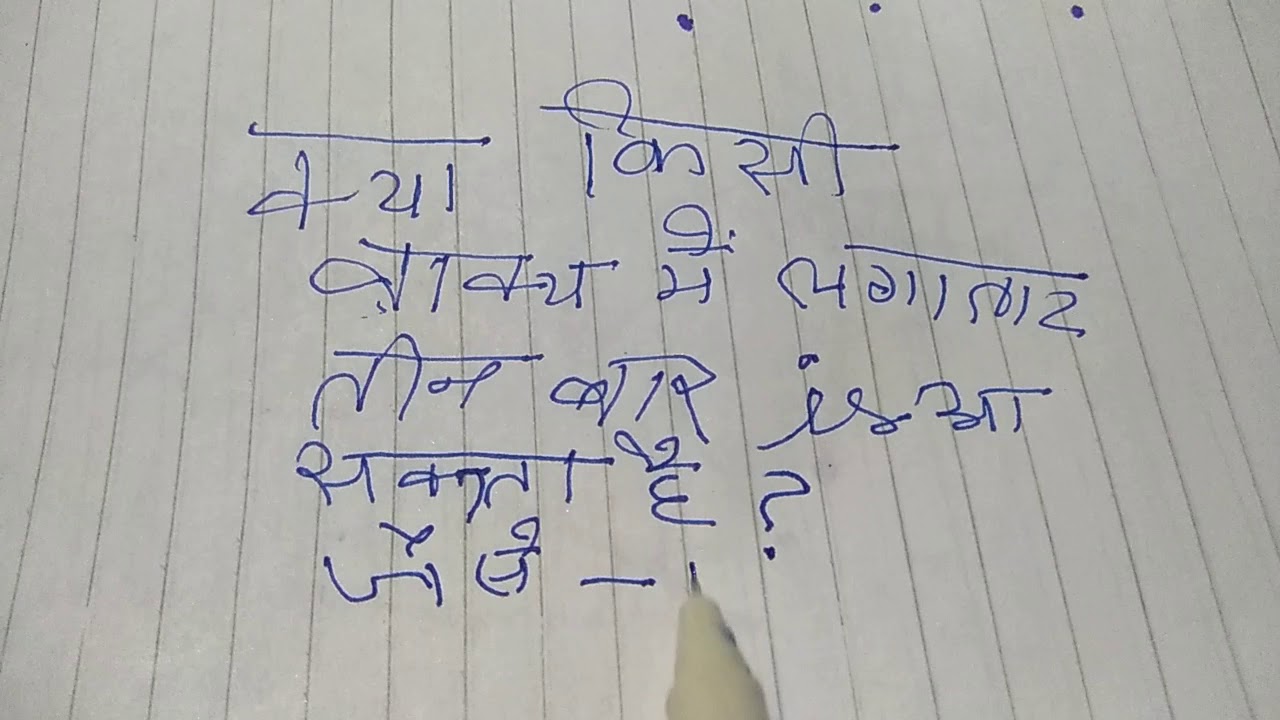 क्या किसी
वाक्य में लगातार
तीन बार is आ
सकता है ?
जैसे —